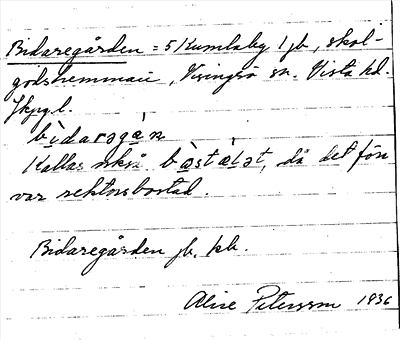 Bidaregården = 5 Kumlaby 1 jb, skol-
godshemman, Visingsö sn. Vista hd.
Jkpg. l.
bìdarəgá̀n
Kallas också bòstä̀lət, då det förr
var rektorsbostad.
Bidaregården jb. kb.
Alice Petersson 1936